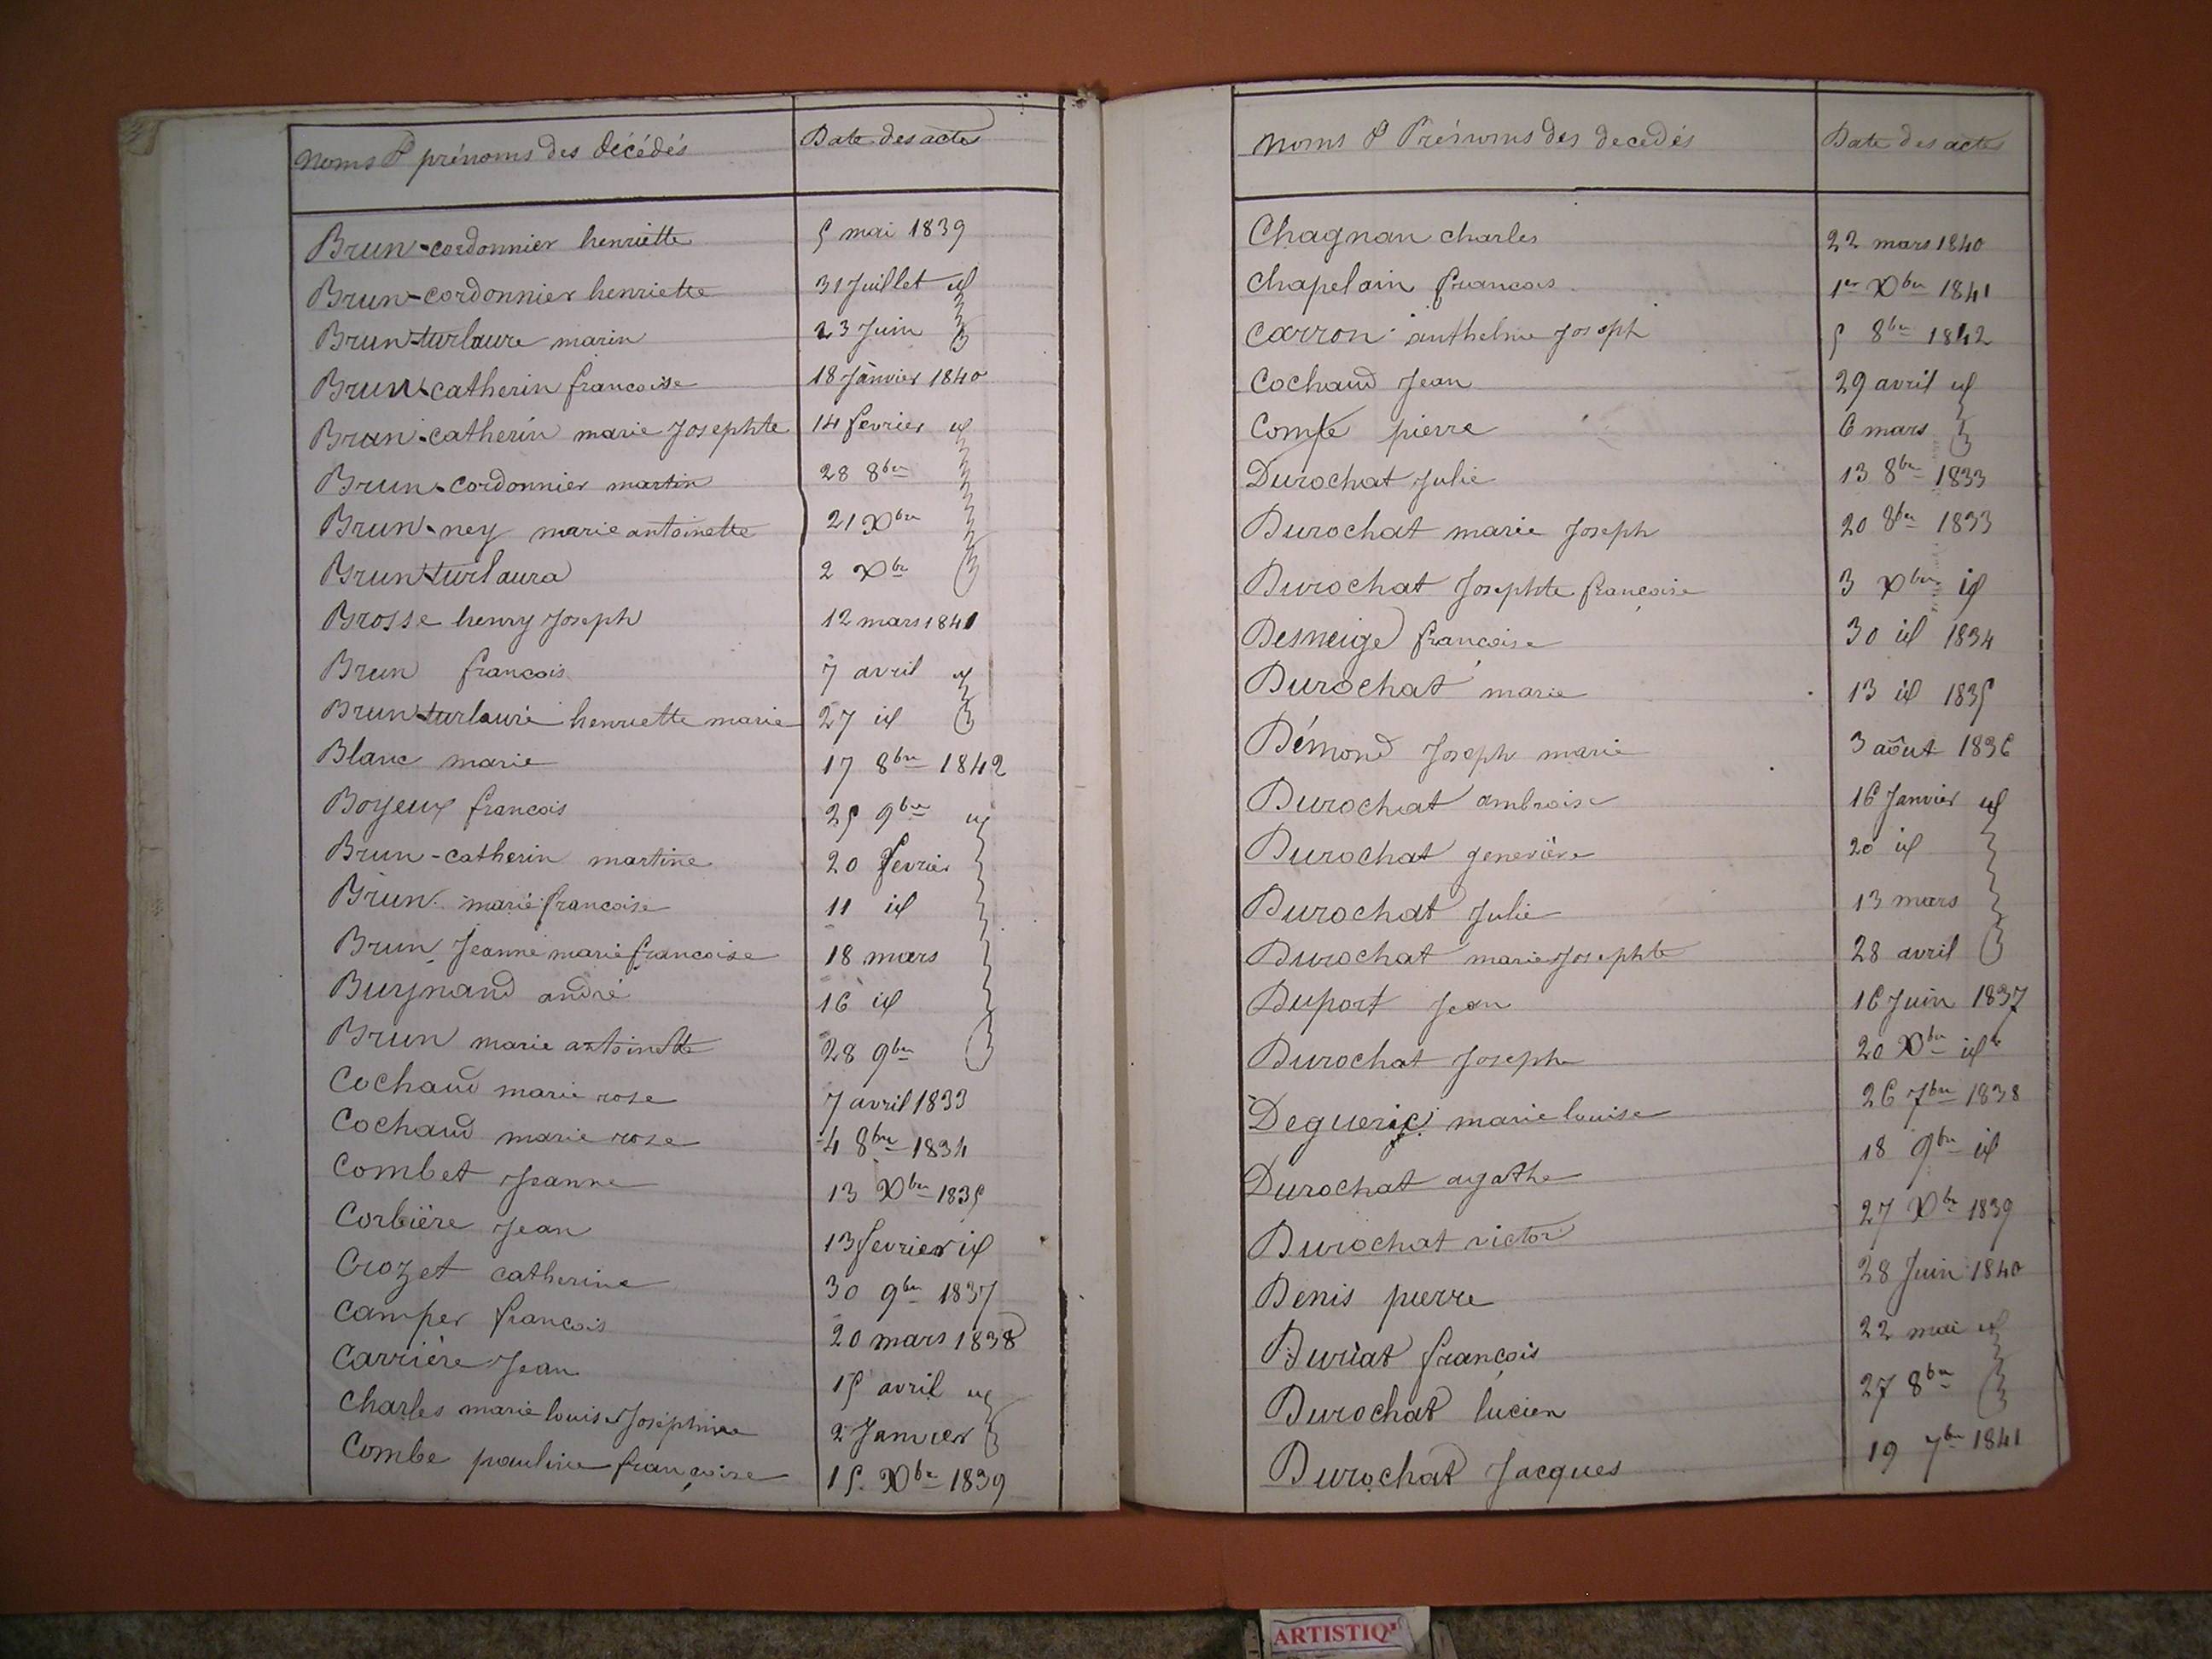 Noms & prénoms des décédés Date des actes
Brun-cordonnier henriette 5 mai 1839
Brun-cordonnier henriette 31 Juillet id
Brun-turlaure marin 23 Juin
Brun-catherin francoise 18 Janvier 1840
Brun-catherin marie Josephte 14 fevrier id
Brun-cordonnier martin 28 8bre
Brun-ney marie antoinette 21 Xbre
Brun-turlaura 2 Xbre
Brosse henry Joseph 12 mars 1841
Brun francois 7 avril id
Brun-turlaure henriette marie 27 id
Blanc marie 17 8bre 1842
Boyeux francois 25 9bre id
Brun-catherin martine 20 fevrier
Brun marie francoise 11 id
Brun Jeanne marie francoise 18 mars
Buynand andré 16 id
Brun marie antoinette 28 9bre
Cochaud marie rose 7 avril 1833
Cochaud marie rose 4 8bre 1834
Combet Jeanne 13 Xbre 1835
Corbière Jean 13 fevrier id
Crozet catherine 30 9bre 1837
Camper francois 20 mars 1838
Carrière Jean 15 avril id
Charles marie louise Josephine 2 Janvier
Combe pauline françoise 15 Xbre 1839
Noms & Prénoms des decedés Date des actes
Chagnan charles 22 mars 1840
Chapelain francois 1er Xbre 1841
Carron anthelme Joseph 5 8bre 1842
Cochaud Jean 29 avril id
Comte pierre 6 mars
Durochat Julie 13 8bre 1833
Durochat marie Joseph 20 8bre 1833
Durochat Josephte françoise 3 Xbre id
Desneige françoise 30 id 1834
Durochat marie 13 id 1835
Démond Joseph marie 3 août 1836
Durochat ambroise 16 Janvier id
Durochat geneviève 20 id
Durochat Julie 13 mars
Durochat marie Josephte 28 avril
Duport Jean 16 Juin 1837
Durochat Joseph 20 Xbre id
marie louise 26 7bre 1838
Durochat agathe 18 9bre id
Durochat victor 27 Xbre 1839
Denis pierre 28 Juin 1840
Duriat françois 22 mai id
Durochat lucien 27 8bre
Durochat Jacques 19 7bre 1841
ARTISTIQ